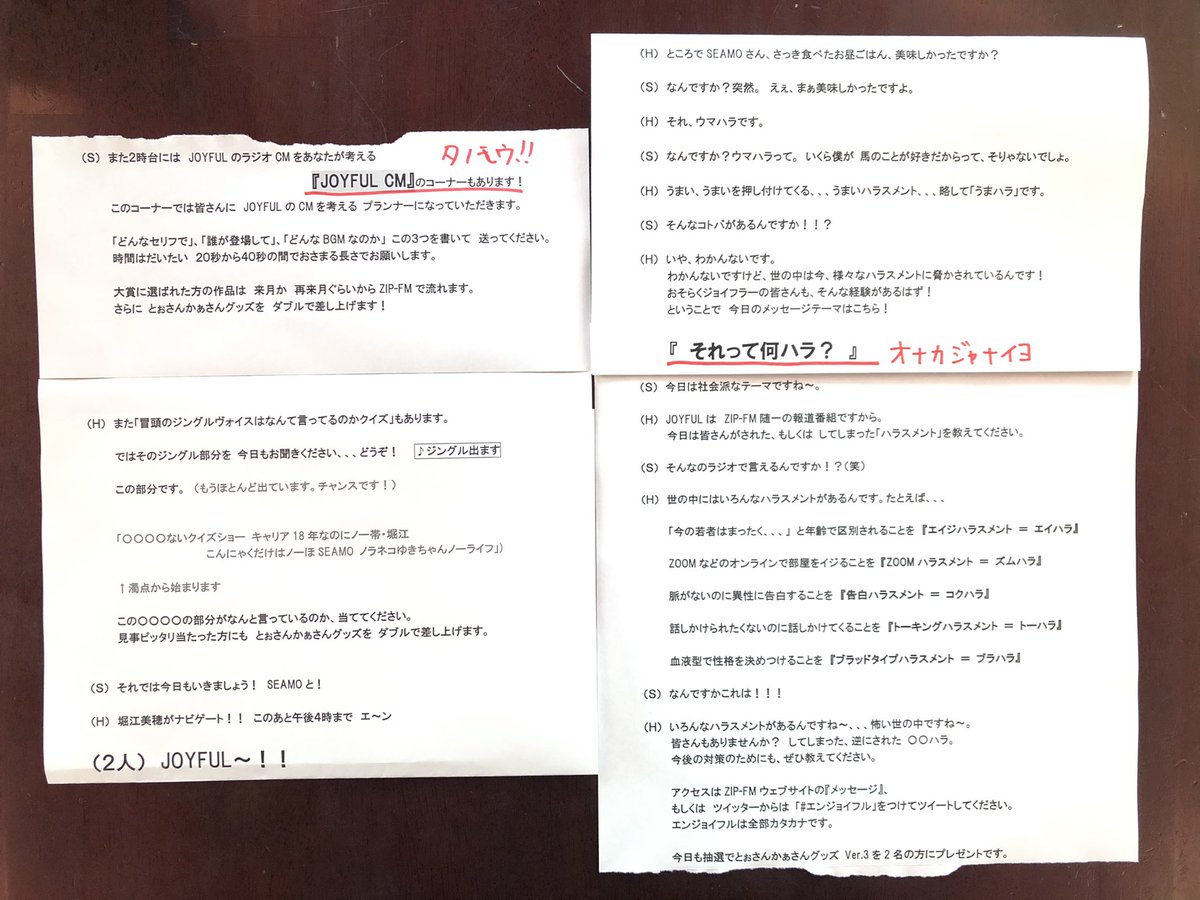 (H) ところで SEAMO さん、さっき食べたお昼ごはん、美味しかったですか？
(S) なんですか？突然。 えぇ、まぁ美味しかったですよ。
(H) それ、ウマハラです。
(S) なんですか？ウマハラって。 いくら僕が 馬のことが好きだからって、そりゃないでしょ。
(H) うまい、うまいを押し付けてくる、、、うまいハラスメント、、、略して「うまハラ」です。
(S) そんなコトバがあるんですか！！？
(H) いや、わかんないです。
わかんないですけど、世の中は今、様々なハラスメントに脅かされているんです！
おそらくジョイフラーの皆さんも、そんな経験があるはず！
ということで 今日のメッセージテーマはこちら！
『 それって何ハラ？ 』 オナカジャナイヨ
(S) 今日は社会派なテーマですね～。
(H) JOYFUL は ZIP-FM 随一の報道番組ですから。
今日は皆さんがされた、もしくは してしまった「ハラスメント」を教えてください。
(S) そんなのラジオで言えるんですか！？(笑)
(H) 世の中にはいろんなハラスメントがあるんです。たとえば、、、
「今の若者はまったく、、、」 と年齢で区別されることを 『エイジハラスメント ＝ エイハラ』
ZOOM などのオンラインで部屋をイジることを 『ZOOM ハラスメント ＝ ズムハラ』
脈がないのに異性に告白することを 『告白ハラスメント ＝ コクハラ』
話しかけられたくないのに話しかけてくることを 『トーキングハラスメント ＝ トーハラ』
血液型で性格を決めつけることを 『ブラッドタイプハラスメント ＝ ブラハラ』
(S) なんですかこれは！！！
(H) いろんなハラスメントがあるんですね～、、、怖い世の中ですね～。
皆さんもありませんか？ してしまった、逆にされた 〇〇ハラ。
今後の対策のためにも、ぜひ教えてください。
アクセスは ZIP-FM ウェブサイトの『メッセージ』、
もしくは ツイッターからは 「#エンジョイフル」をつけてツイートしてください。
エンジョイフルは全部カタカナです。
今日も抽選でとぉさんかぁさんグッズ Ver.3 を 2 名の方にプレゼントです。
(S) また2時台には JOYFUL のラジオ CM をあなたが考える タノモウ!!
『JOYFUL CM』のコーナーもあります！
このコーナーでは皆さんに JOYFUL の CM を考える プランナーになっていただきます。
「どんなセリフで」、「誰が登場して」、「どんな BGM なのか」 この３つを書いて 送ってください。
時間はだいたい 20秒から40秒の間でおさまる長さでお願いします。
大賞に選ばれた方の作品は 来月か 再来月ぐらいから ZIP-FM で流れます。
さらに とぉさんかぁさんグッズを ダブルで差し上げます！
(H) また「冒頭のジングルヴォイスはなんて言ってるのかクイズ」もあります。
ではそのジングル部分を 今日もお聞きください、、、どうぞ！ ♪ジングル出ます
この部分です。 (もうほとんど出ています。チャンスです！)
「〇〇〇〇ないクイズショー キャリア 18 年なのにノー帯・堀江
こんにゃくだけはノーほ SEAMO ノラネコゆきちゃんノーライフ」)
↑濁点から始まります
この〇〇〇〇の部分がなんと言っているのか、当ててください。
見事ピッタリ当たった方にも とぉさんかぁさんグッズを ダブルで差し上げます。
(S) それでは今日もいきましょう！ SEAMO と！
(H) 堀江美穂がナビゲート！！ このあと午後４時まで エ～ン
(２人) JOYFUL～！！